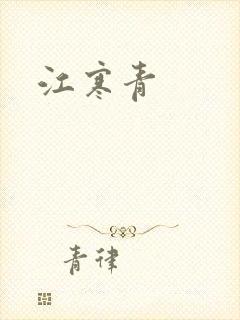 江寒青
青律